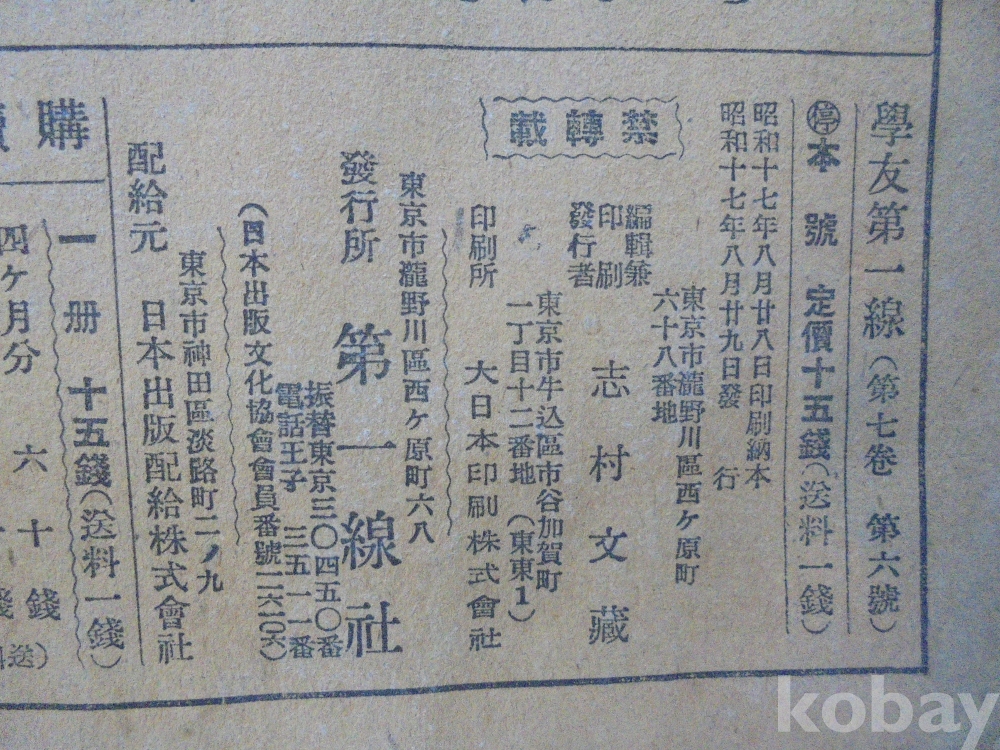 學友第一線(第七卷 第六號)
停 本號 定價十五錢(送料一錢)
昭和十七年八月廿八日印刷納本
昭和十七年八月廿九日發行
禁轉載
東京市瀧野川區西ヶ原町
六十八番地
編輯兼
印刷
發行者
志村文藏
東京市牛込區市谷加賀町
一丁目十二番地(東東1)
印刷所 大日本印刷株式會社
東京市瀧野川區西ヶ原町六八
發行所 第一線社
振替東京三〇四五〇番
電話王子 三五一一番
(日本出版文化協會會員番號一二六一〇六)
東京市神田區淡路町二ノ九
配給元 日本出版配給株式會社
購
一册 十五錢(送料一錢)
四ヶ月分 六十錢
kobay